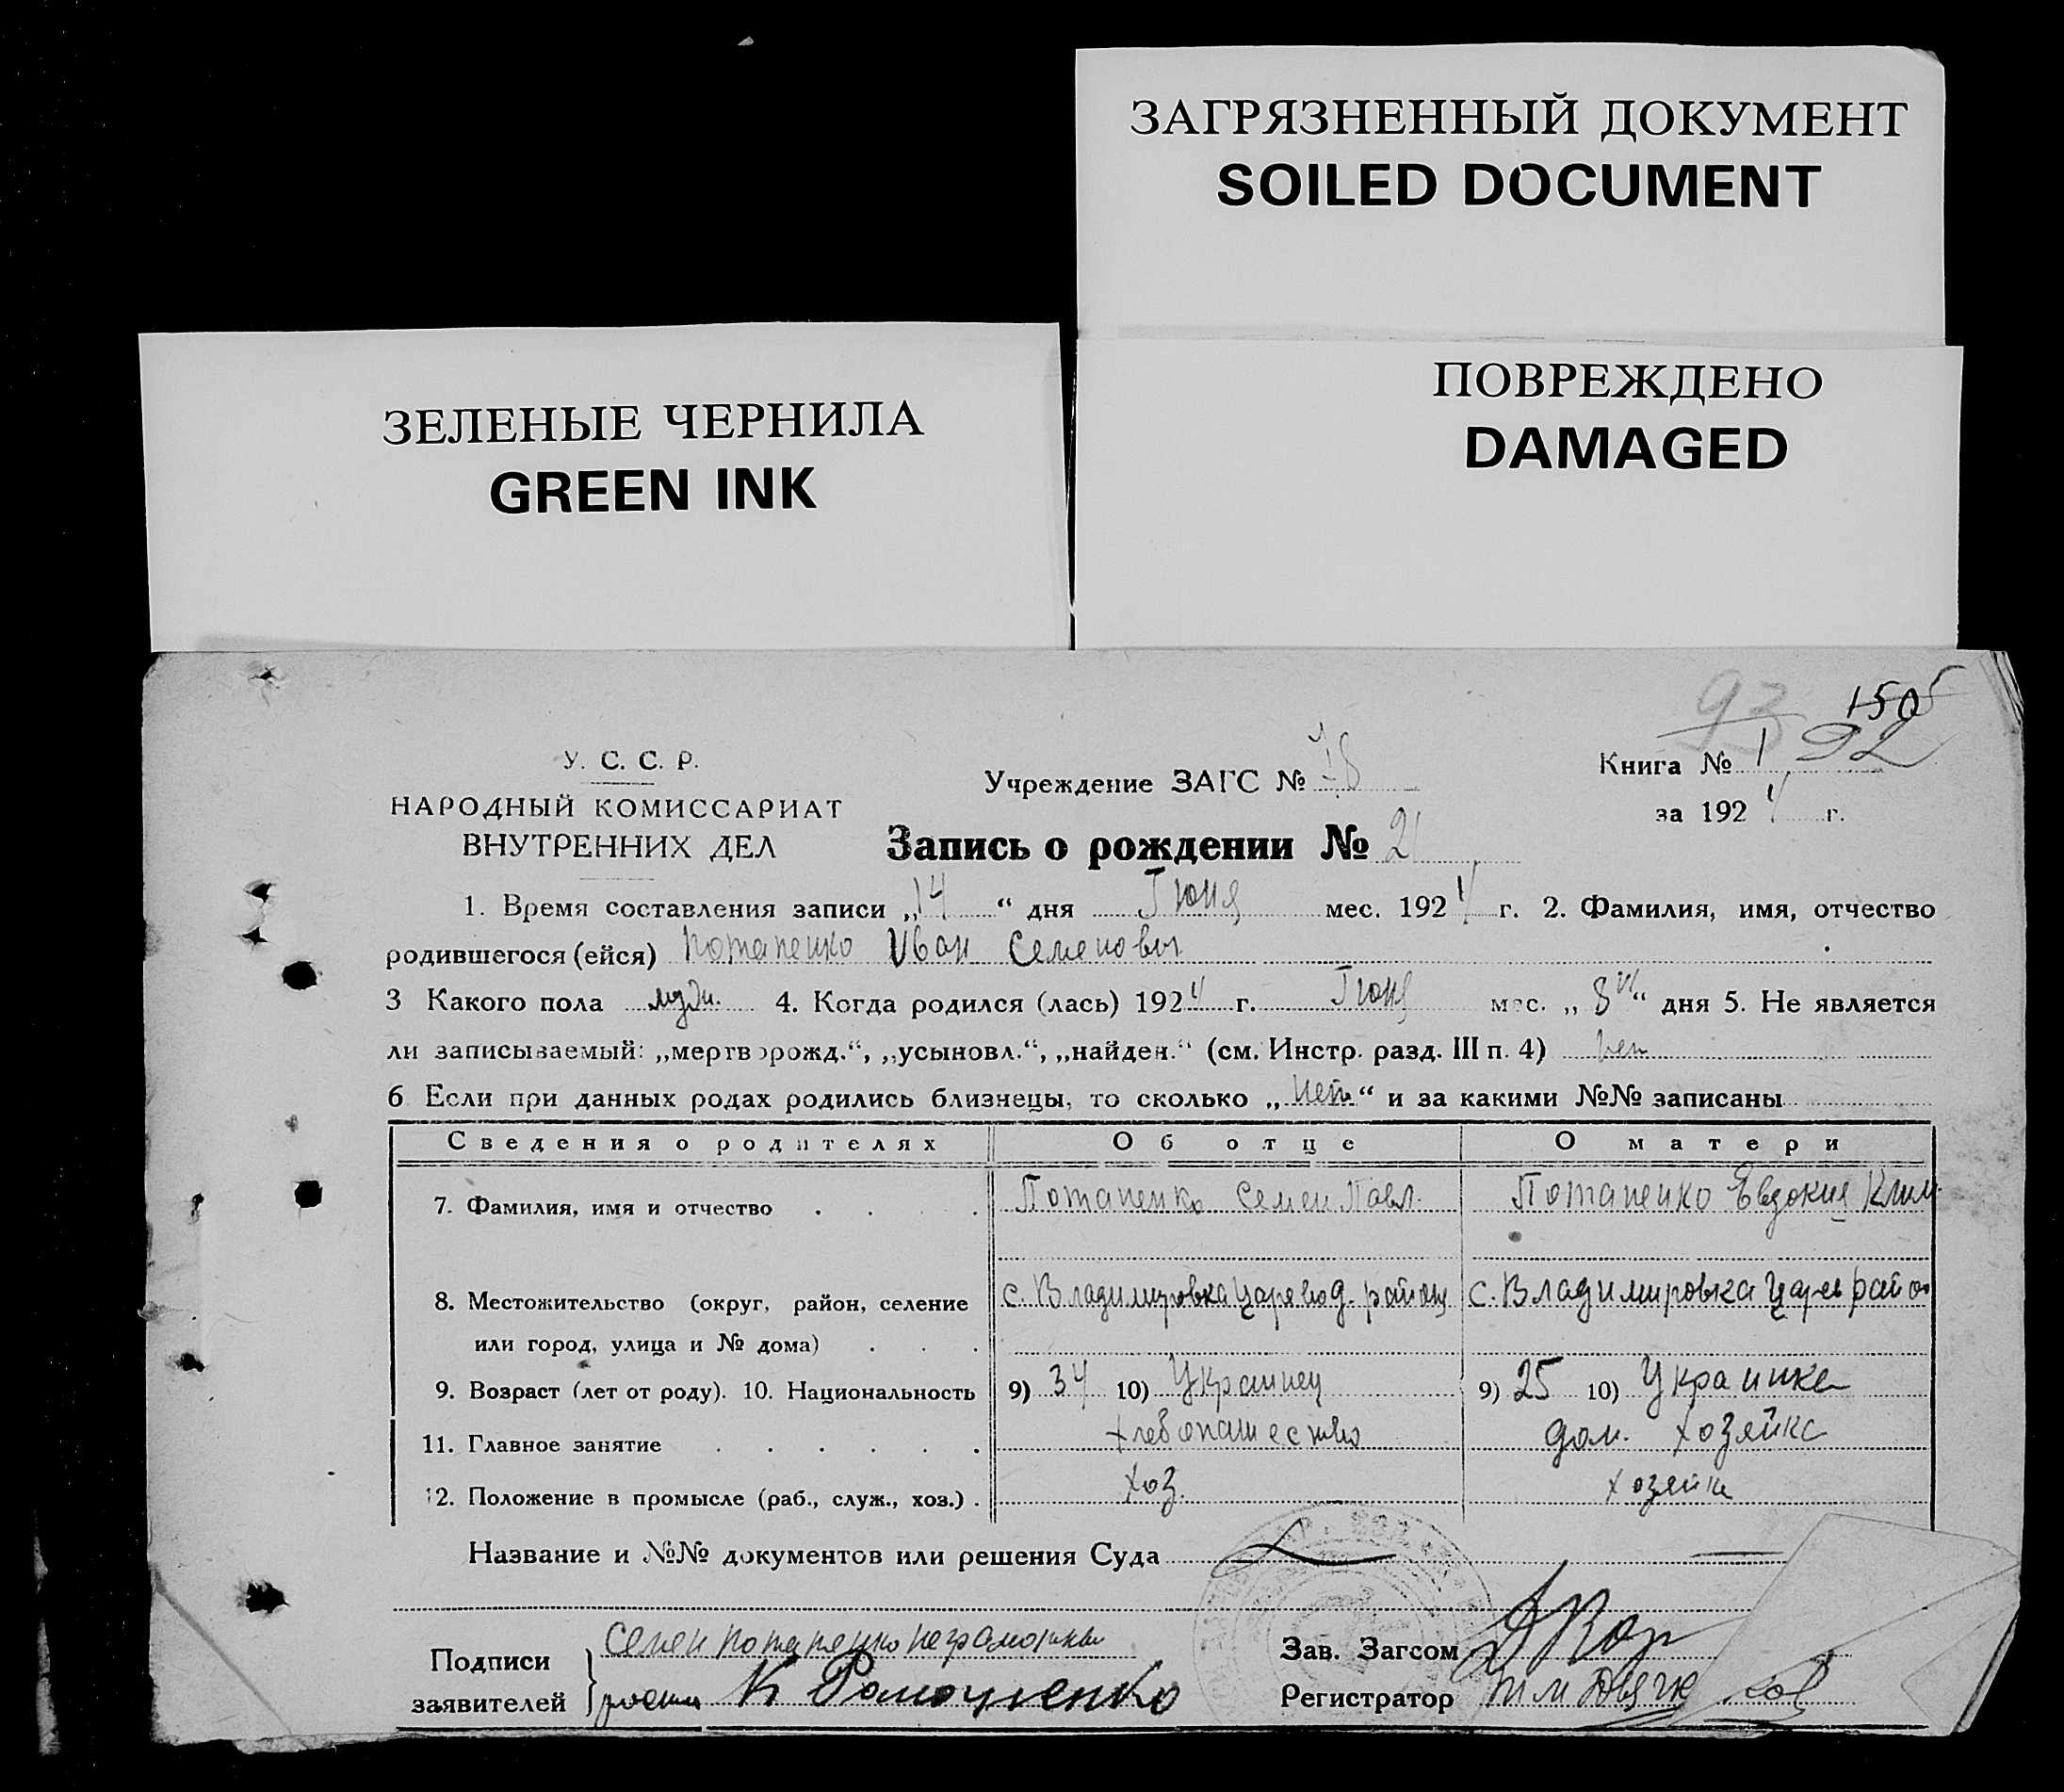 ЗАГРЯЗНЕННЫЙ ДОКУМЕНТ
SOILED DOCUMENT
ЗЕЛЕНЫЕ ЧЕРНИЛА
GREEN INK
ПОВРЕЖДЕНО
DAMAGED
93 150
У. С. С. Р.
НАРОДНЫЙ КОМИССАРИАТ
ВНУТРЕННИХ ДЕЛ
Учреждение ЗАГС №
Книга № 1 92
за 1924 г.
Запись о рождении № 21
1. Время составления записи „14“ дня Июня мес. 1924 г. 2. Фамилия, имя, отчество
родившегося (ейся) Потапенко Иван Семенович
3 Какого пола муж. 4. Когда родился (лась) 1924 г. Июня мес. „8“ дня 5. Не является
ли записываемый: „мертворожд.“, „усыновл.“, „найден.“ (см. Инстр. разд. III п. 4) нет
6 Если при данных родах родились близнецы, то сколько „нет“ и за какими №№ записаны
Сведения о родителях Об отце О матери
7. Фамилия, имя и отчество Потапенко Семен Павл. Потапенко Евдокия Клим.
8. Местожительство (округ, район, селение с. Владимировка Царевод. района с. Владимировка Царев район
или город, улица и № дома)
9. Возраст (лет от роду). 10. Национальность 9) 34 10) Украинец 9) 25 10) Украинка
11. Главное занятие хлебопашество дом. хозяйка
12. Положение в промысле (раб., служ., хоз.) хоз. хозяйка
Название и №№ документов или решения Суда
Подписи заявителей Семен Потапенко неграмотный
К Ромашенко
Зав. Загсом
Регистратор